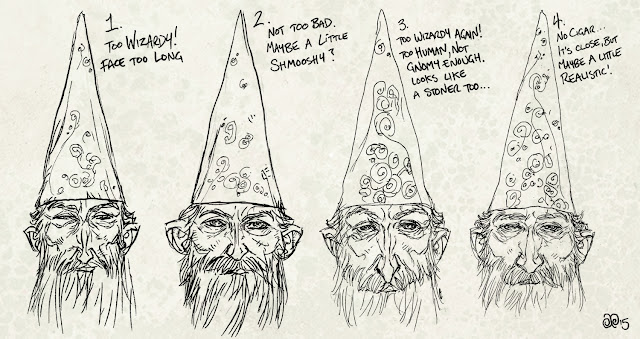 1.
TOO WIZARDY!
FACE TOO LONG
2.
NOT TOO BAD.
MAYBE A LITTLE
SHMOOSHY?
3.
TOO WIZARDY AGAIN!
TOO HUMAN, NOT
GNOMY ENOUGH.
LOOKS LIKE
A STONER TOO...
4.
NO CIGAR...
IT'S CLOSE, BUT
MAYBE A LITTLE
REALISTIC!
'15